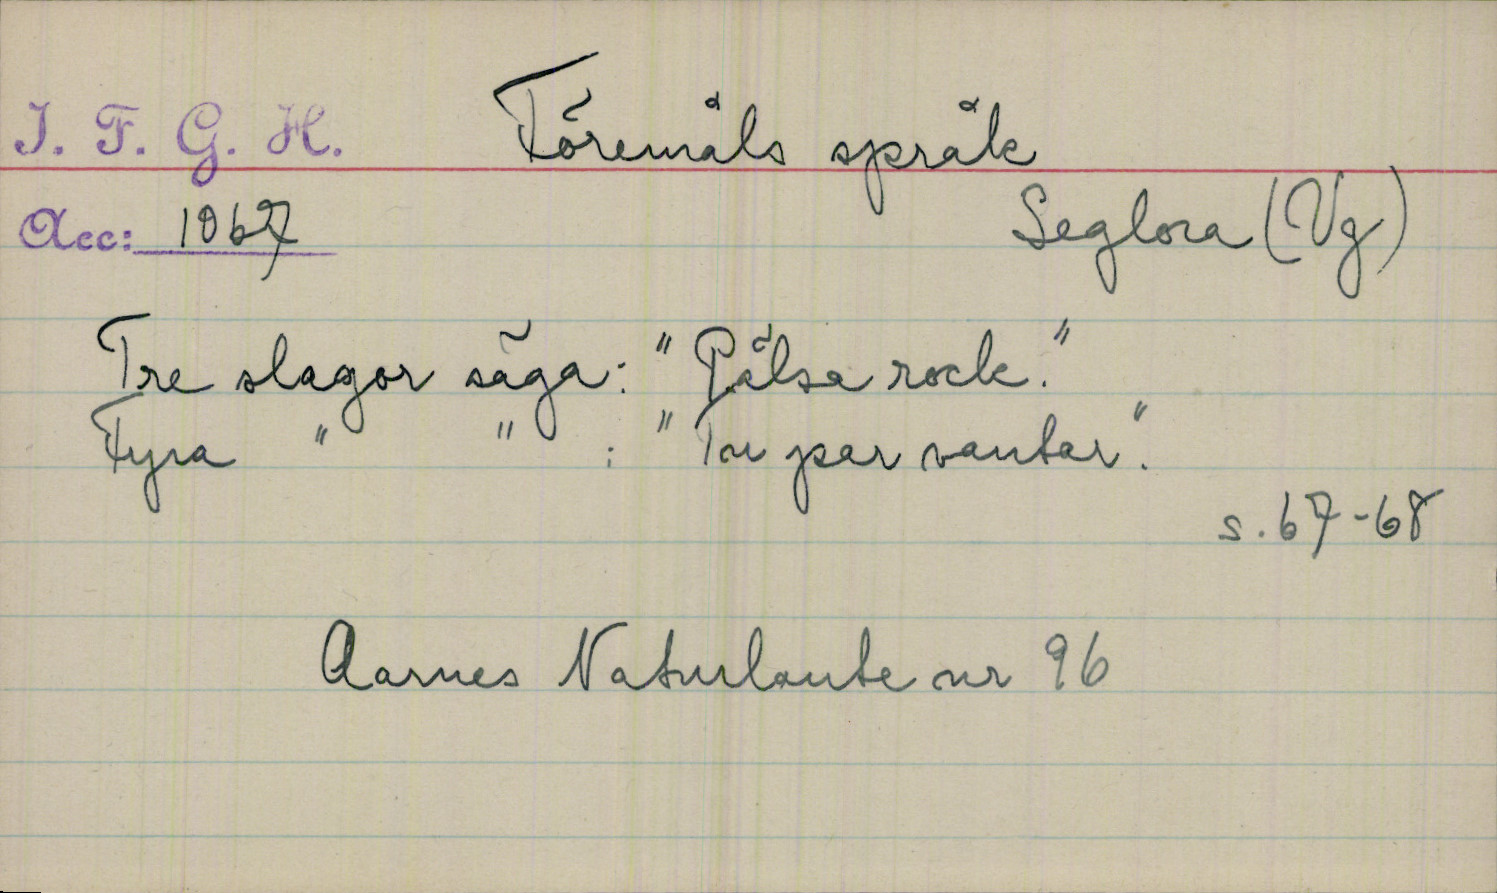 I. F. G. H.
Föremåls språk
Acc: 1067
Seglora (Vg)
Tre slagor säga: "Pälsa rock."
Fyra " " : "Tu par vantar".
s. 67-68
Aarnes Naturlaute nr 96